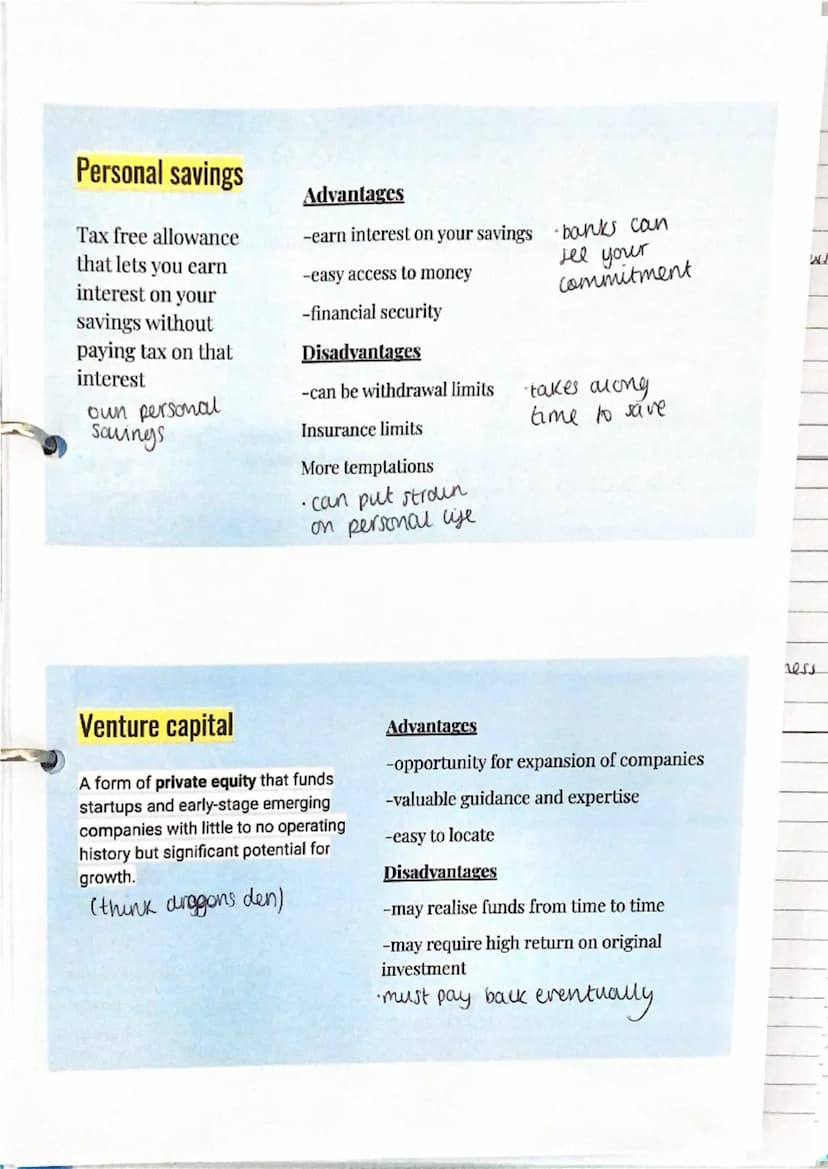 Personal savings
Tax free allowance
that lets you earn
interest on your
savings without
paying tax on that
interest
own personal
savings
Advantages
-earn interest on your savings
-easy access to money
-financial security
·banks can
see your
commitment
Disadvantages
-can be withdrawal limits
Insurance limits
More temptations
·can put strain
on personal life
·takes along
time to save
Venture capital
A form of private equity that funds
startups and early-stage emerging
companies with little to no operating
history but significant potential for
growth.
(think dragons den)
Advantages
-opportunity for expansion of companies
-valuable guidance and expertise
-easy to locate
Disadvantages
-may realise funds from time to time
-may require high return on original
investment
·must pay back eventually